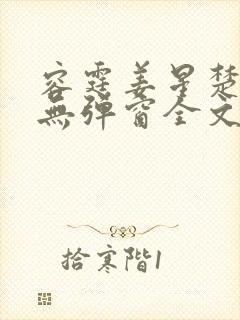 容霆姜星楚
無彈窗全文
拾寒階1